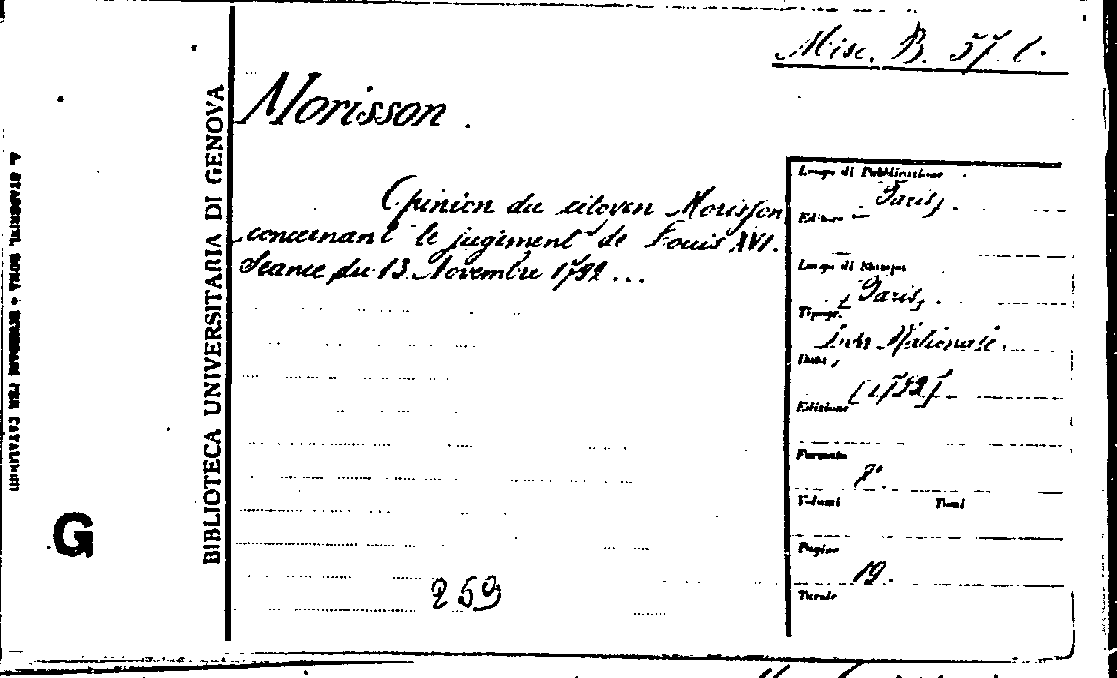 Misc. B. 57. 6.
Morisson.
Opinion du citoyen Morisson
concernant le jugement de Louis XVI.
Séance du 13 Novembre 1792...
259
BIBLIOTECA UNIVERSITARIA DI GENOVA
G
Luogo di Pubblicazione
Paris,
Editore
Luogo di Stampa
Paris,
Tipogr.
Nationale.
Data
[1792]
Edizione
Formato
8°.
Volumi Tomi
Pagine
19.
Tavole